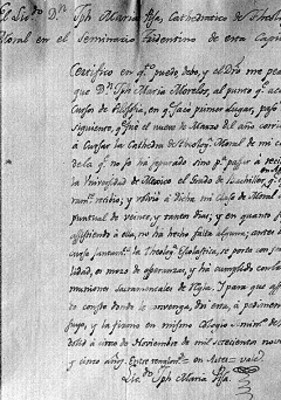 El Lic.do D.n Jph Maria Pisa, Cathedratico de Theol
Moral en el seminario Tridentino de esta Capi
Certifico en q.e puedo, debo, y el Dro me pe
que D.n Jph Maria Morelos, al punto q.e aca
Cursos de Filosofia, en q.e sacó primer Lugar, pasó
siguiente, q.e fue el nueve de Marzo del año corri
à Cursar la Cathedra de Theolog.a Moral de mi c
de la q.e no se ha separado sino p.a passar à reci
la Universidad de Mexico el Grado de Bachiller, q.e
recibio; y volvió à dicha mi clase de Moral
puntual de veinte, y tantos dias; y en quanto
assistiendo à ella, no ha hecho falta alguna; antes
cursa la Theolog.a Escolastica, se porta con
lidad, es mozo de esperanzas, y ha cumplido con la
muniones Sacramentales de Regla. Y para que
do conste donde le convenga, doi esta, à pedimen
suyo, y la firmo en mismo Colegio
à cinco de Noviembre de mil setecientos nove
y cinco años. Entre renglon.s = en Artes = vale.
Lic.do Jph Maria Pisa.